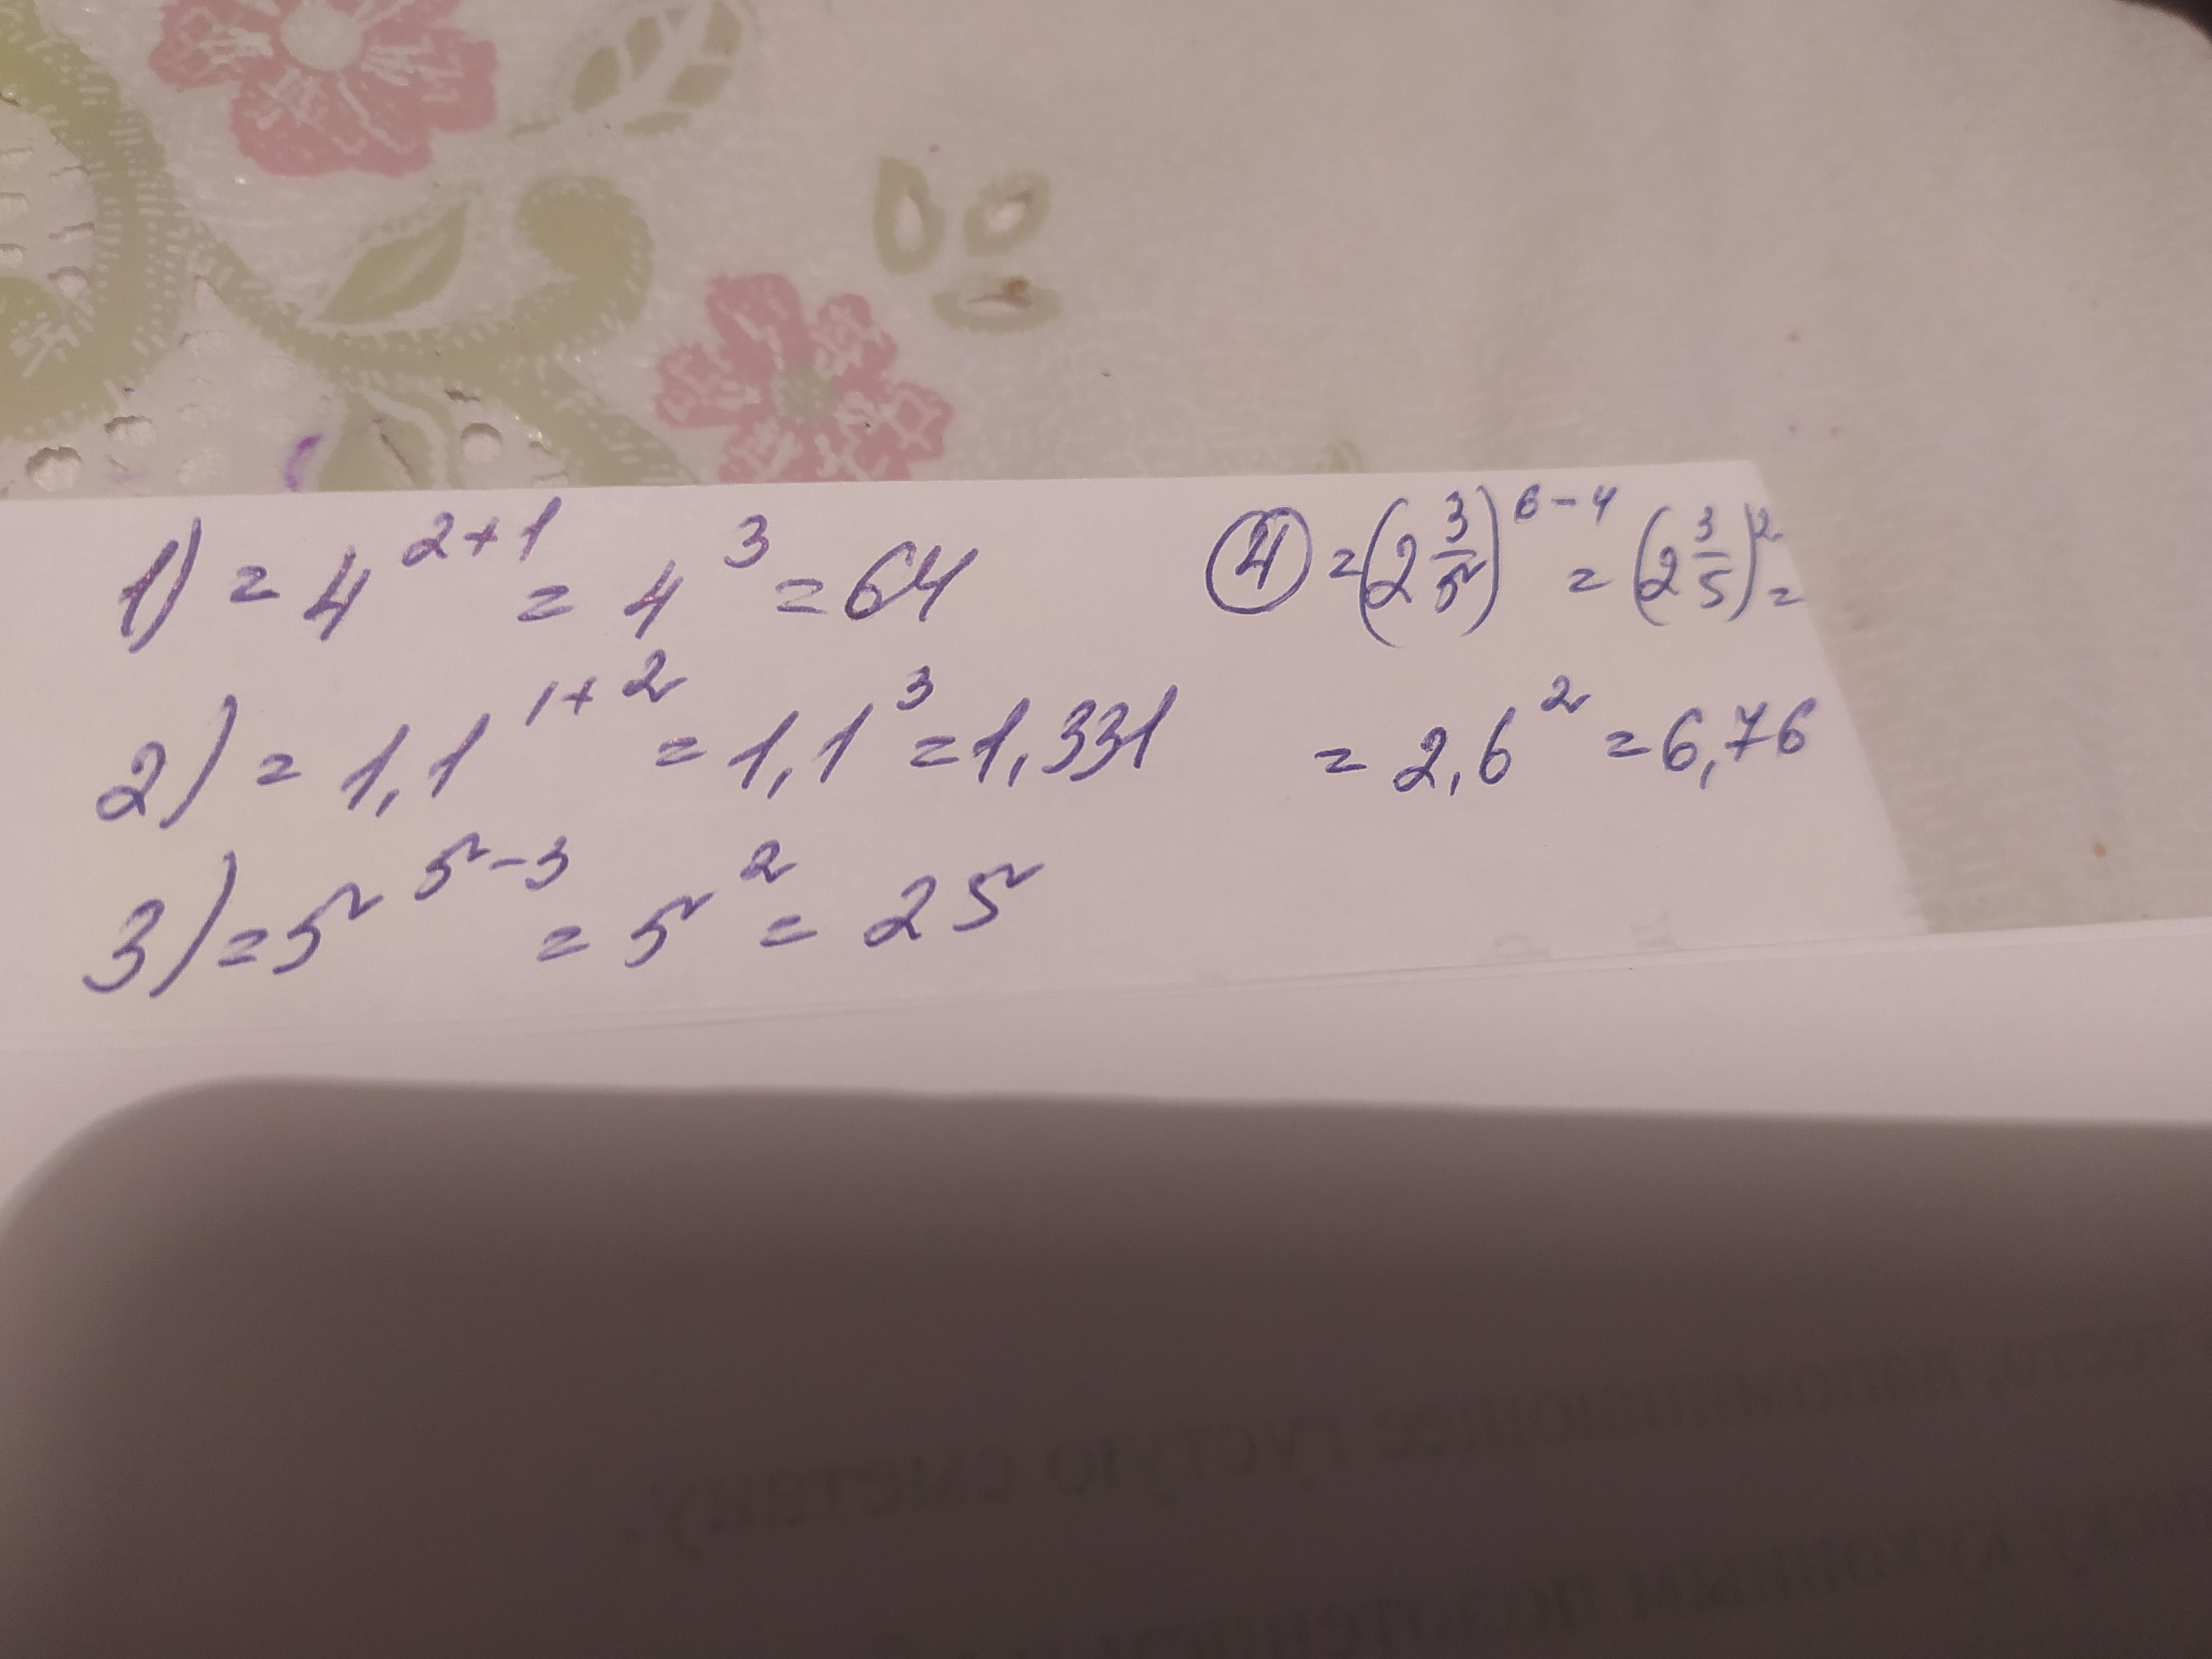 1) = 4^{2+1} = 4^3 = 64
2) = 1,1^{1+2} = 1,1^3 = 1,331
3) = 5^{5-3} = 5^2 = 25
④ = (2 3/5)^{6-4} = (2 3/5)^2 =
= 2,6^2 = 6,76
напоминающее густую сметану.
кухонным полотенцем